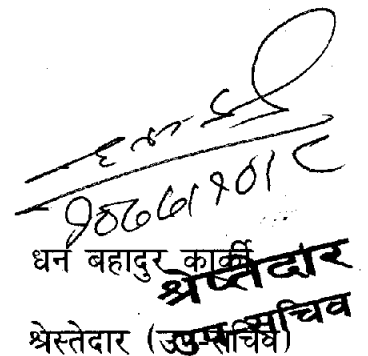 धन बहादुर कार्की
श्रेष्तेदार
श्रेस्तेदार (उप सचिव)
उप सचिव